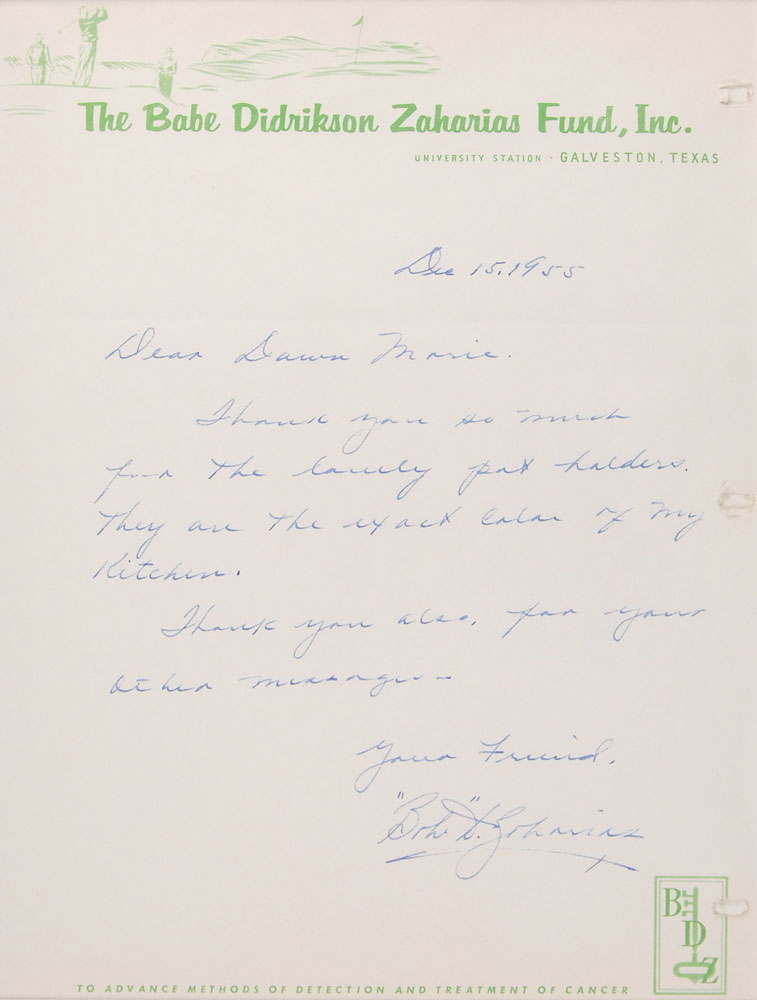 The Babe Didrikson Zaharias Fund, Inc.
UNIVERSITY STATION · GALVESTON, TEXAS
Dec 15, 1955
Dear Dawn Marie.
Thank you so much
for the lovely pot holders.
They are the exact color of my
Kitchen.
Thank you also, for your
other messages –
Your Friend,
"Babe" D. Zaharias
B
D
Z
TO ADVANCE METHODS OF DETECTION AND TREATMENT OF CANCER